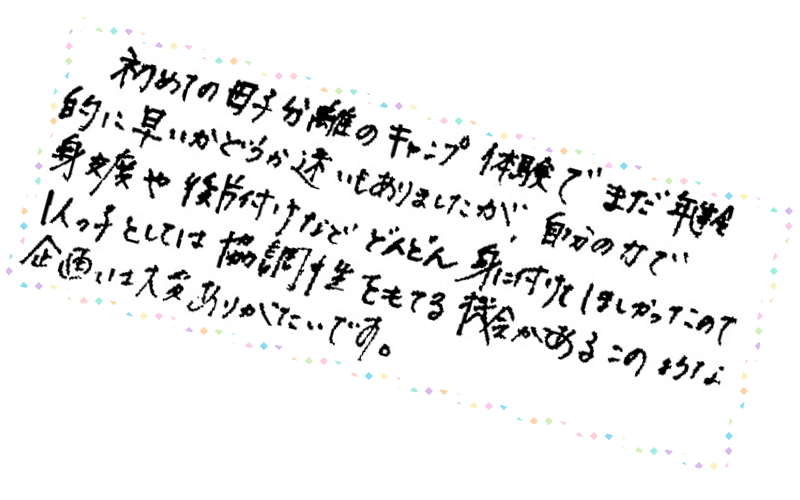 初めての母子分離のキャンプ体験でまだ年齢
的に早いかどうか迷いもありましたが、自分の力で
身支度や後片付けなどどんどん身に付けてほしかったので
1人っ子としては協調性をもてる機会があるこのような
企画は大変ありがたいです。